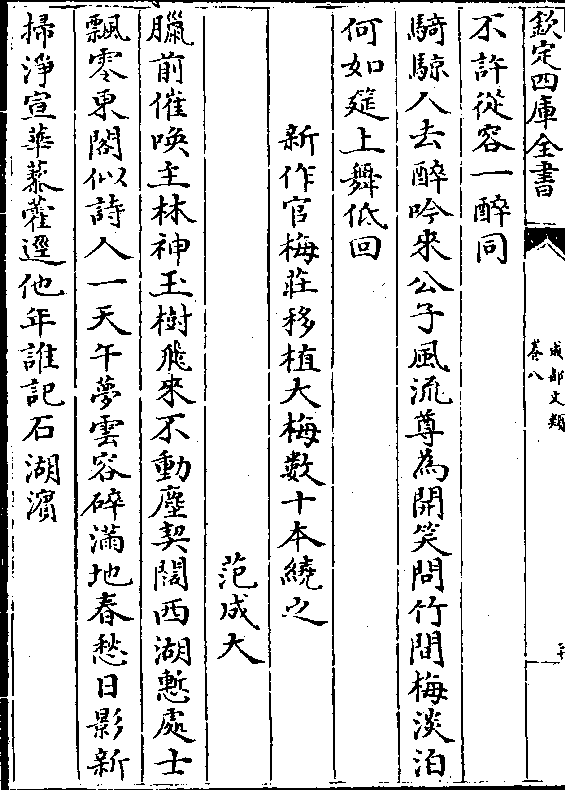 欽定四庫全書
成都文類
卷八
二十
不許從容一醉同
騎鯨人去醉吟來公子風流尊為開笑問竹間梅淡泊
何如筵上舞低回
新作官梅莊移植大梅數十本繞之
范成大
臘前催喚主林神玉樹飛來不動塵契闊西湖慙處士
飄零東閣似詩人一天午夢雲容碎滿地春愁日影新
掃淨宣華藜藿逕他年誰記石湖濵